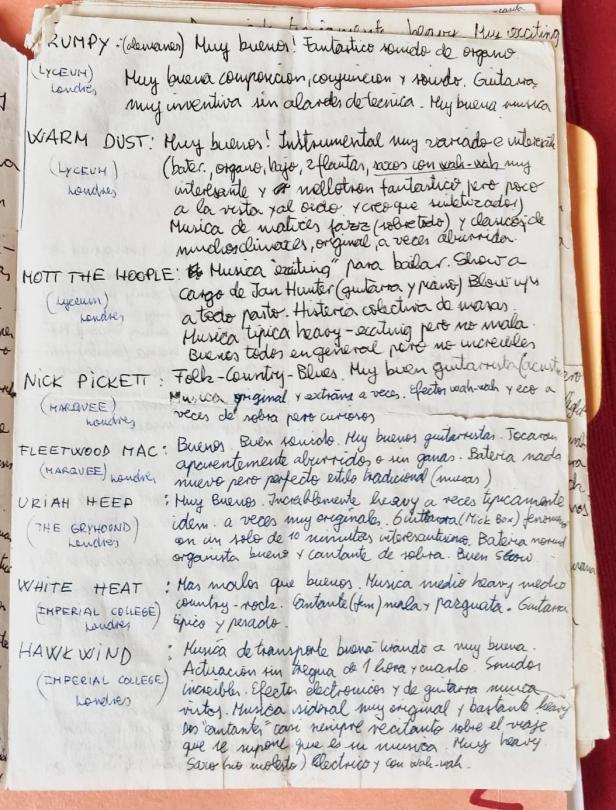 heavy. Muy exciting
RUMPY: (alemanes) Muy buenos! Fantastico sonido de organo
(LYCEUM) Muy buena composicion, conjuncion y sonido. Guitarra
Londres muy inventiva sin alardes de tecnica. Muy buena musica
WARM DUST: Muy buenos! Instrumental muy variado e interesante
(LYCEUM) (bater., organo, bajo, 2 flautas, saxos con wah-wah muy
Londres interesante y mellotron fantastico pero poco
a la vista y al oido y creo que sintetizados)
Musica de matices jazz (sobretodo) y clasicos, de
muchos climaxes, original, a veces aburrida.
MOTT THE HOOPLE: Musica "exciting" para bailar. Show a
(Lyceum) cargo de Ian Hunter (guitarra y piano) Blow ups
Londres a todo pasto. Histeria colectiva de masas.
Musica tipica heavy-exciting pero no mala.
Buenos todos en general pero no increibles
NICK PICKETT: Folk-Country-Blues. Muy buen guitarrista
(MARQUEE) Musica original y extraña a veces. Efectos wah-wah y eco a
Londres veces de sobra pero curiosos
FLEETWOOD MAC: Buenos. Buen sonido. Muy buenos guitarristas. Tocaron
(MARQUEE) Londres aparentemente aburridos o sin ganas. Bateria nada
nuevo pero perfecto estilo tradicional
URIAH HEEP: Muy Buenos. Increiblemente heavy a veces tipicamente
(THE GRYHOUND) idem. a veces muy originales. Guitarra (Mick Box)
Londres en un solo de 10 minutos interesantisimo. Bateria normal
organista bueno y cantante de sobra. Buen Show
WHITE HEAT: Mas malos que buenos. Musica medio heavy medio
(IMPERIAL COLLEGE) country-rock. Cantante (fem) mala y parguata. Guitarra
Londres tipico y pesado.
HAWKWIND: Musica de transporte buena tirando a muy buena.
(IMPERIAL COLLEGE) Actuacion sin tregua de 1 hora y cuarto. Sonidos
Londres increibles. Efectos electronicos y de guitarra nunca
vistos. Musica sideral muy original y bastante heavy
Dos "cantantes" casi siempre recitando sobre el viaje
que se supone que es su musica. Muy heavy.
Saxo (no molesto) electrico y con wah-wah.